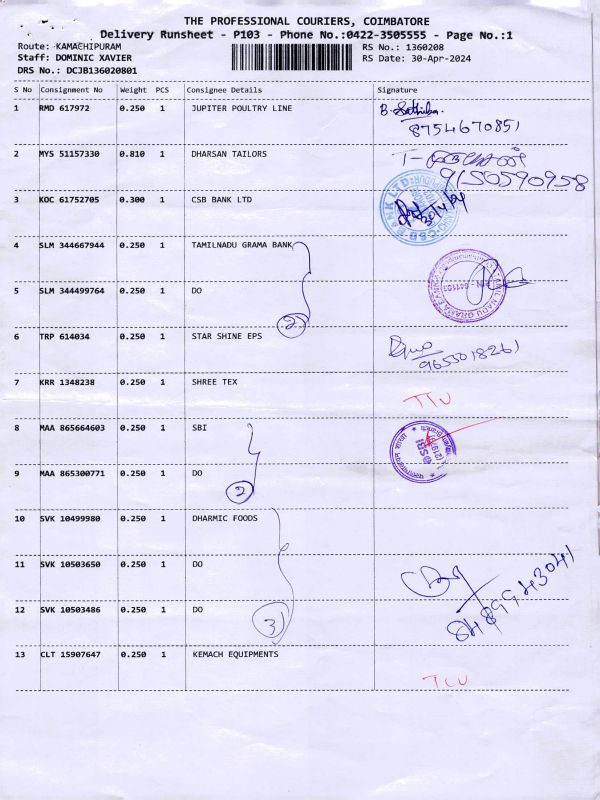 THE PROFESSIONAL COURIERS, COIMBATORE
Delivery Runsheet - P103 - Phone No.:0422-3505555 - Page No.:1
Route: KAMACHIPURAM RS No.: 1360208
Staff: DOMINIC XAVIER RS Date: 30-Apr-2024
DRS No.: DCJB136020801
S No Consignment No Weight PCS Consignee Details Signature
1 RMD 617972 0.250 1 JUPITER POULTRY LINE
8754670851
2 MYS 51157330 0.810 1 DHARSAN TAILORS
9150590958
3 KOC 61752705 0.300 1 CSB BANK LTD
4 SLM 344667944 0.250 1 TAMILNADU GRAMA BANK
5 SLM 344499764 0.250 1 DO
2
6 TRP 614034 0.250 1 STAR SHINE EPS
9655018261
7 KRR 1348238 0.250 1 SHREE TEX
8 MAA 865664603 0.250 1 SBI
9 MAA 865300771 0.250 1 DO
2
10 SVK 10499980 0.250 1 DHARMIC FOODS
11 SVK 10503650 0.250 1 DO
12 SVK 10503486 0.250 1 DO
3
8489943041
13 CLT 15907647 0.250 1 KEMACH EQUIPMENTS